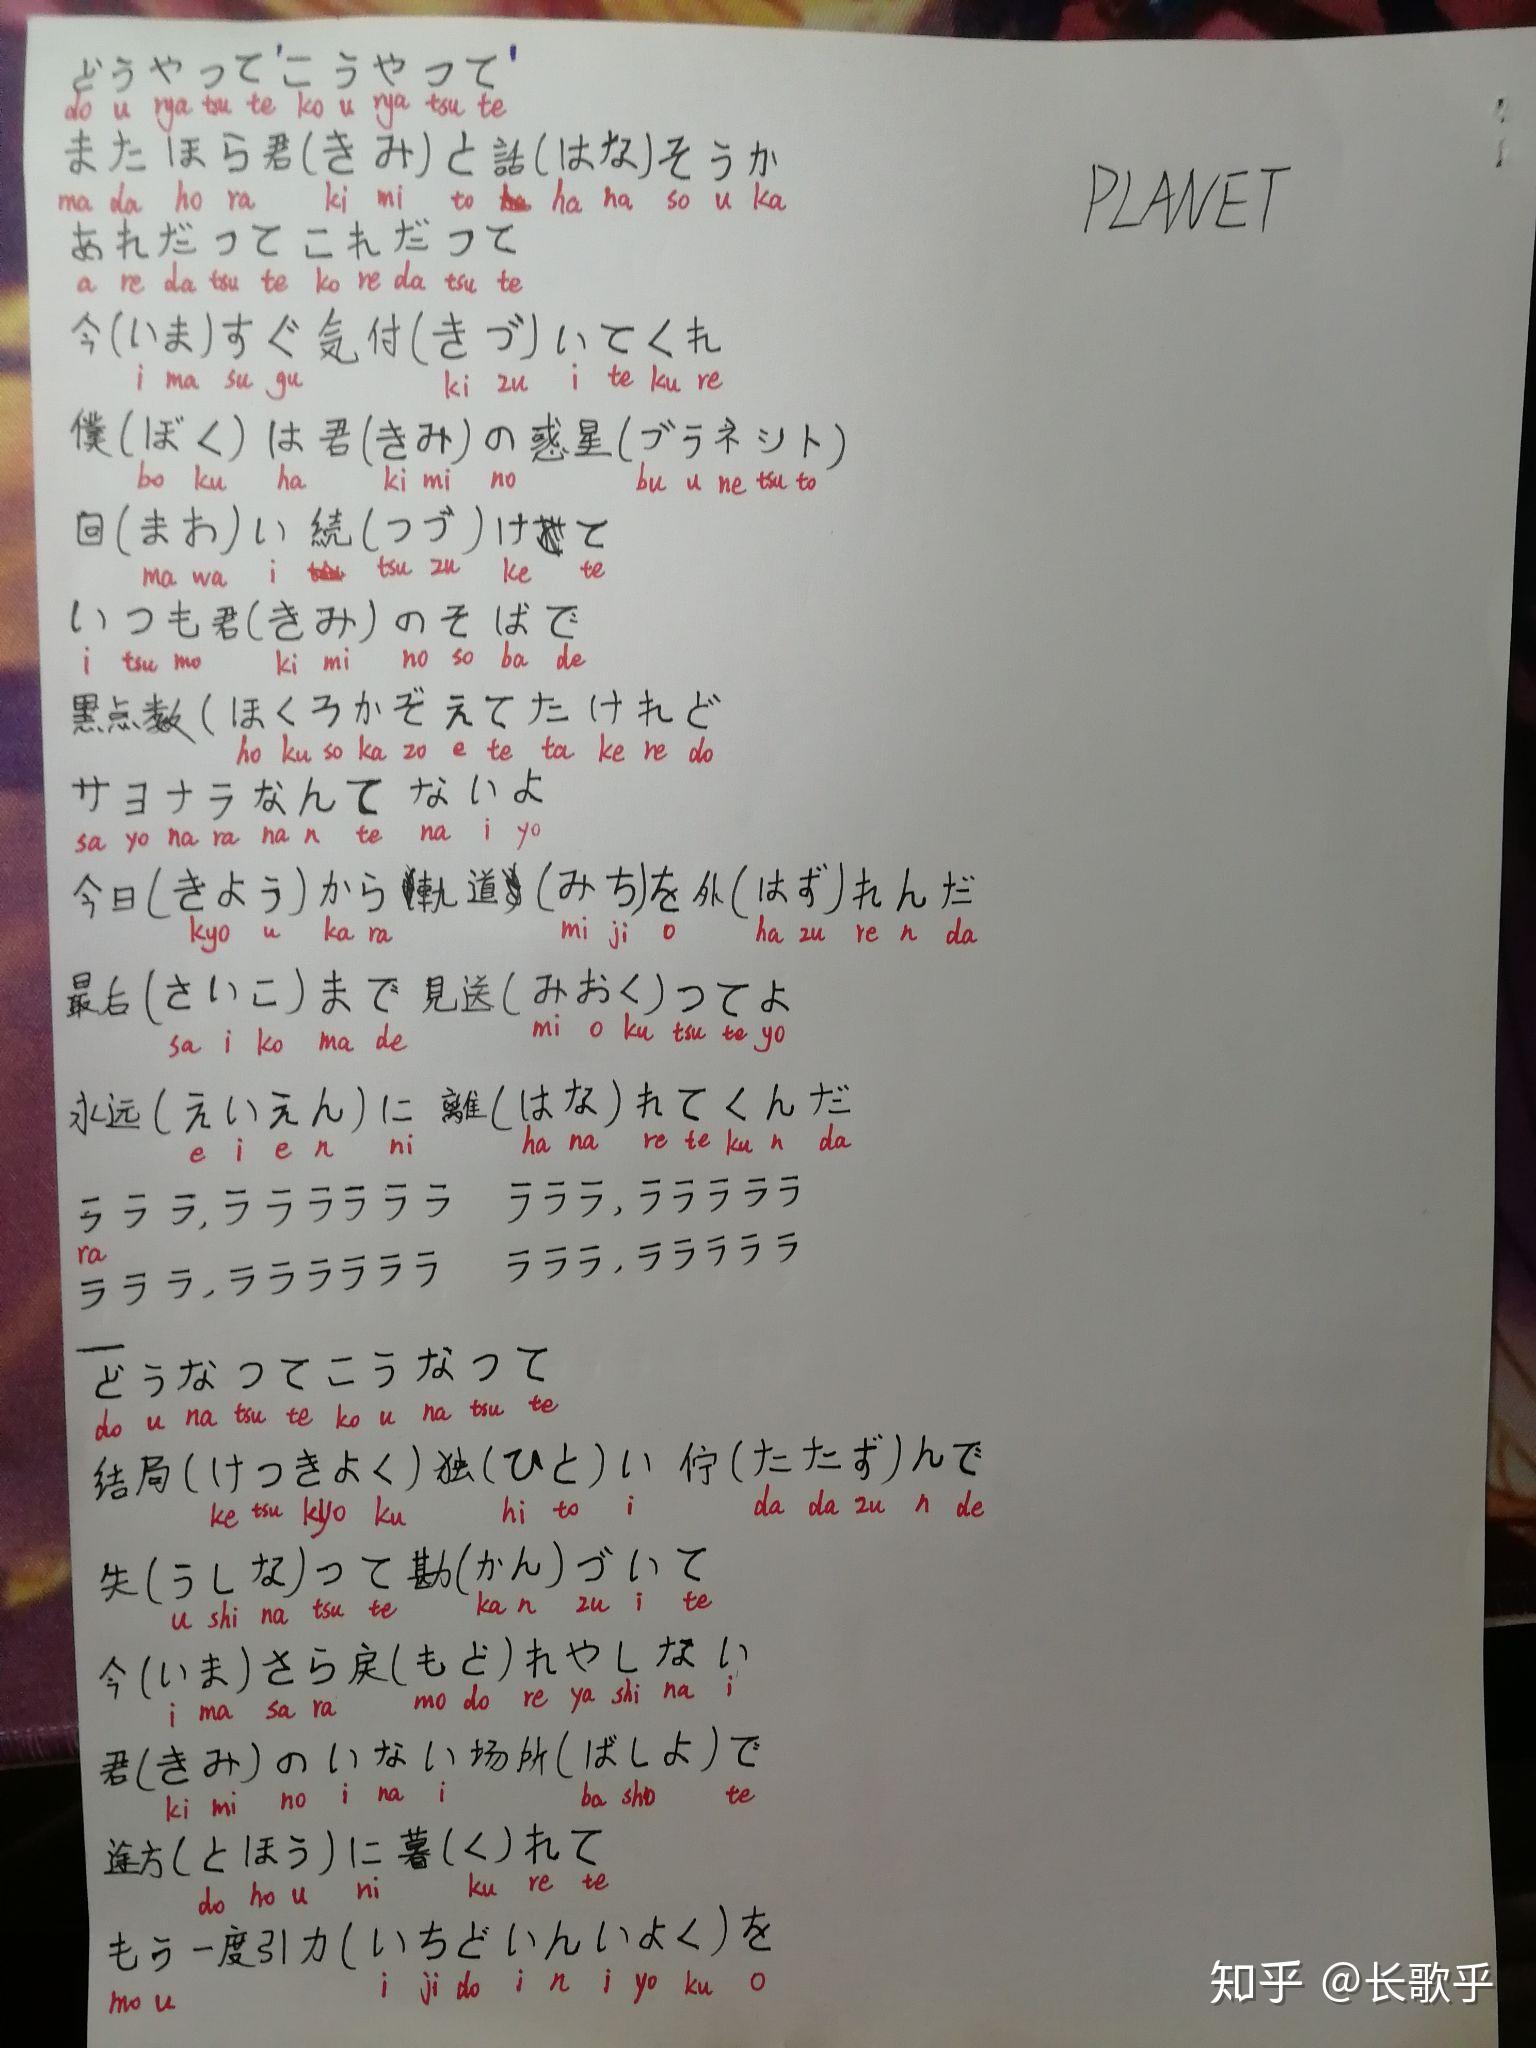 どうやって'こうやって'
do u rya tsu te ko u rya tsu te
またほら君(きみ)と話(はな)そうか
ma da ho ra ki mi to ha na so u ka
PLANET
あれだってこれだって
a re da tsu te ko re da tsu te
今(いま)すぐ気付(きづ)いてくれ
i ma su gu ki zu i te ku re
僕(ぼく)は君(きみ)の惑星(ブラネット)
bo ku ha ki mi no bu u ne tsu to
回(まわ)い続(つづ)けて
ma wa i tsu zu ke te
いつも君(きみ)のそばで
i tsu mo ki mi no so ba de
黒点数(ほくろかぞえてたけれど
ho ku so ka zo e te ta ke re do
サヨナラなんてないよ
sa yo na ra na n te na i yo
今日(きよう)から軌道(みち)を外(はず)れんだ
kyo u ka ra mi ji o ha zu re n da
最后(さいこ)まで見送(みおく)ってよ
sa i ko ma de mi o ku tsu te yo
永远(えいえん)に離(はな)れてくんだ
e i e n ni ha na re te ku n da
ラララ,ララララララ ラララ,ララララララ
ra
ラララ,ララララララ ラララ,ララララララ
どうなってこうなって
do u na tsu te ko u na tsu te
结局(けつきよく)独(ひと)い佇(たたず)んで
ke tsu kyo ku hi to i da da zu n de
失(うしな)って勘(かん)づいて
u shi na tsu te ka n zu i te
今(いま)さら戻(もど)れやしない
i ma sa ra mo do re ya shi na i
君(きみ)のいない场所(ばしよ)で
ki mi no i na i ba sho te
途方(とほう)に暮(く)れて
do ho u ni ku re te
もう一度引力(いちどいんいよく)を
mo u i ji do i n i yo ku o
知乎 @长歌乎